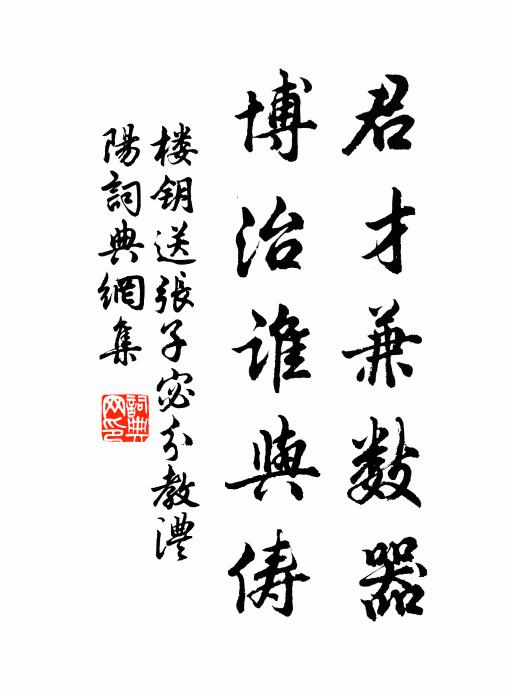 君才兼数器
博治谁与俦
楼钥送张子宓分教澧
陽詞典網集
詞典网印